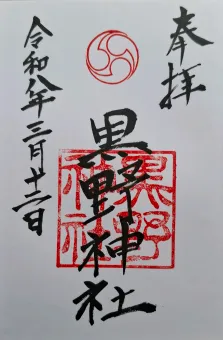 奉拝
黒野神社
黒野神社
令和八年三月廿二日